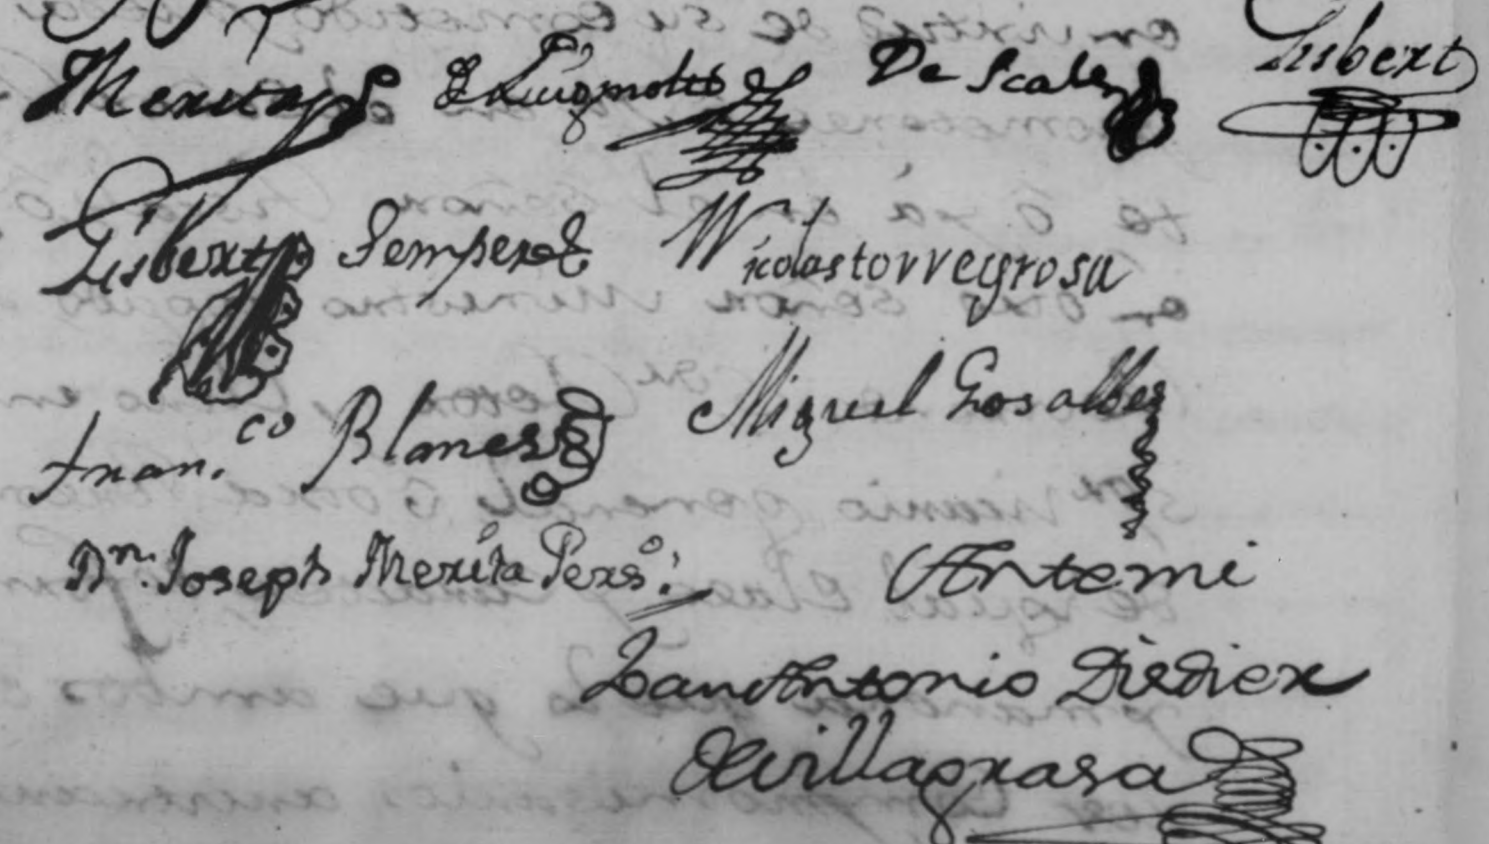 Merita Puigmolto De Scals Gisbert
Gisbert Sempere Nicolas torregrosa
Fran.co Blanes Miguel Gosalbez
Dn. Joseph Merita Pers.o Antemi
Antonio Diedier
Villagrasa